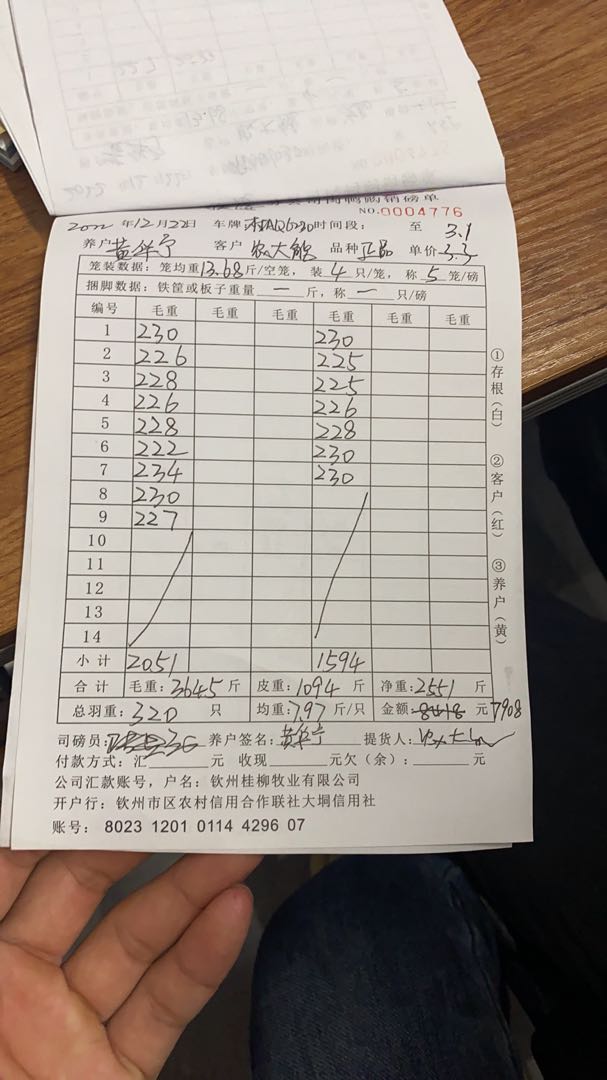 销磅单
NO.0004776
2022年12月22日 车牌 时间段： 至 3.1
养户 黄华宁 客户 农大能 品种 正品 单价 3.3
笼装数据：笼均重13.68斤/空笼，装4只/笼，称5笼/磅
捆脚数据：铁筐或板子重量一斤，称一只/磅
编号 毛重 毛重 毛重 毛重 毛重 毛重
1 230 230
2 226 225
3 228 225
4 226 226
5 228 228
6 222 230
7 234 230
8 230
9 227
10
11
12
13
14
小计 2051 1594
合计 毛重：3645斤 皮重：1094斤 净重：2551斤
总羽重：320只 均重：7.97斤/只 金额 8418 元 7908
司磅员： 养户签名：黄华宁 提货人：
付款方式：汇 元 收现 元欠（余）： 元
公司汇款账号，户名：钦州桂柳牧业有限公司
开户行：钦州市区农村信用合作联社大垌信用社
账号： 8023 1201 0114 4296 07
①存根（白）
②客户（红）
③养户（黄）